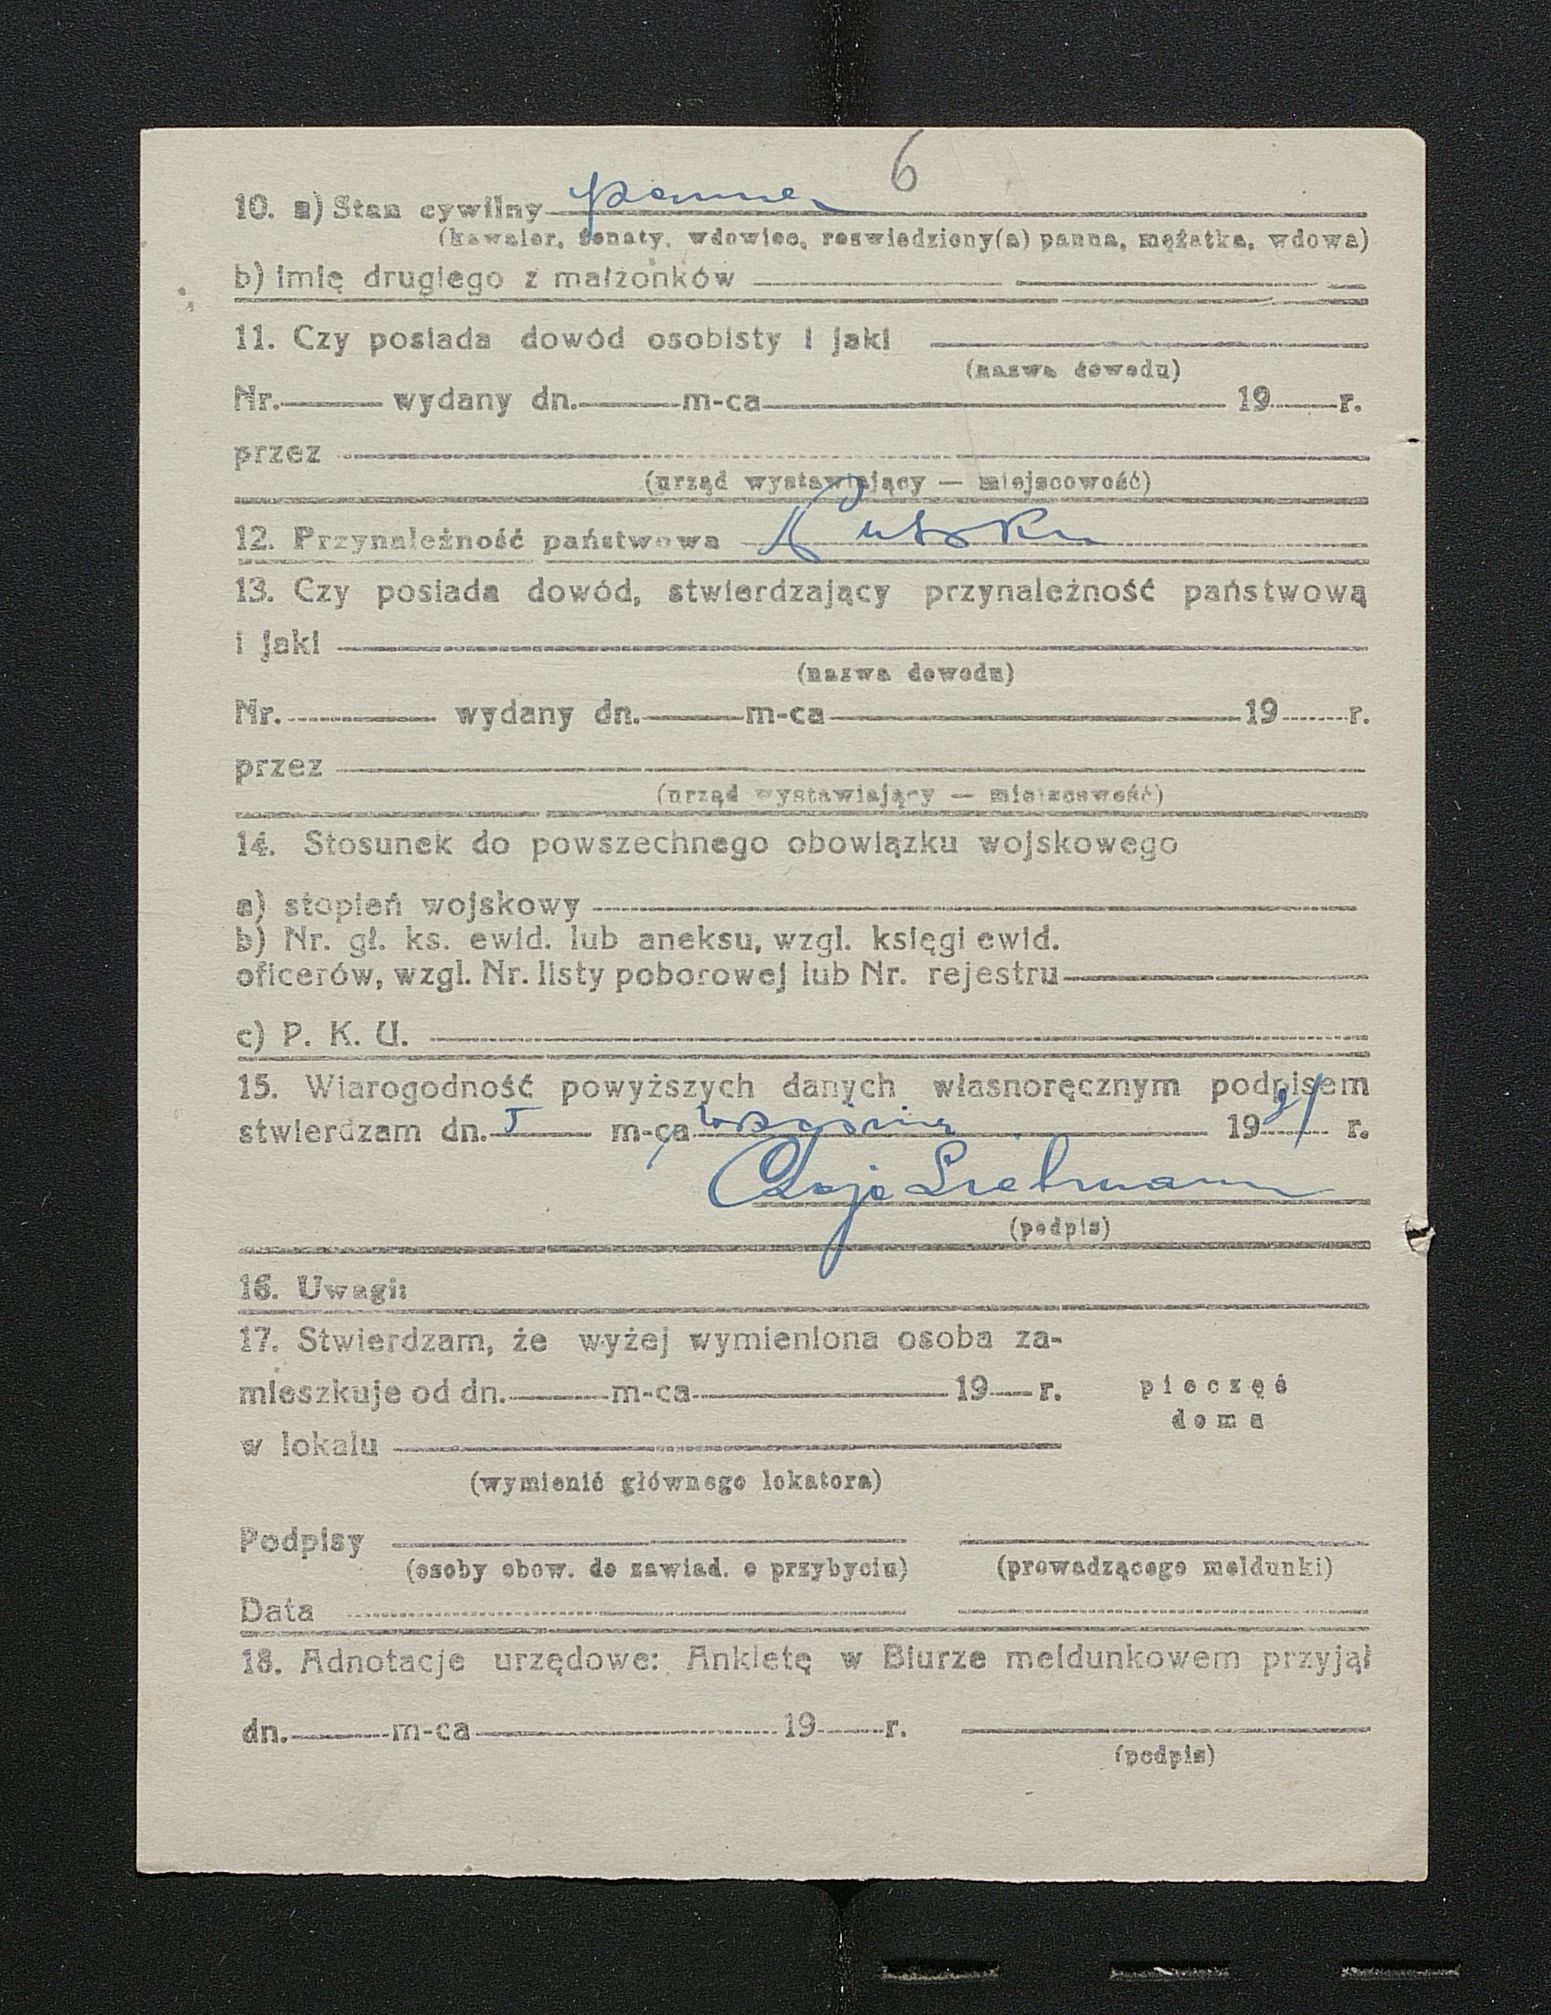 6
10. a) Stan cywilny panna
(kawaler, żonaty, wdowiec, rozwiedziony(a) panna, mężatka, wdowa)
b) imię drugiego z małżonków
11. Czy posiada dowód osobisty i jaki
(nazwa dowodu)
Nr. wydany dn. m-ca 19 r.
przez
(urząd wystawiający — miejscowość)
12. Przynależność państwowa
13. Czy posiada dowód, stwierdzający przynależność państwową
i jaki
(nazwa dowodu)
Nr. wydany dn. m-ca 19 r.
przez
(urząd wystawiający — miejscowość)
14. Stosunek do powszechnego obowiązku wojskowego
a) stopień wojskowy
b) Nr. gł. ks. ewid. lub aneksu, wzgl. księgi ewid.
oficerów, wzgl. Nr. listy poborowej lub Nr. rejestru
c) P. K. U.
15. Wiarogodność powyższych danych własnoręcznym podpisem
stwierdzam dn. m-ca 19 r.
(podpis)
16. Uwagi:
17. Stwierdzam, że wyżej wymieniona osoba za-
mieszkuje od dn. m-ca 19 r. pieczęć
doma
w lokalu
(wymienić głównego lokatora)
Podpisy
(osoby obow. do zawiad. o przybyciu) (prowadzącego meldunki)
Data
18. Adnotacje urzędowe: Ankietę w Biurze meldunkowem przyjął
dn. m-ca 19 r.
(podpis)